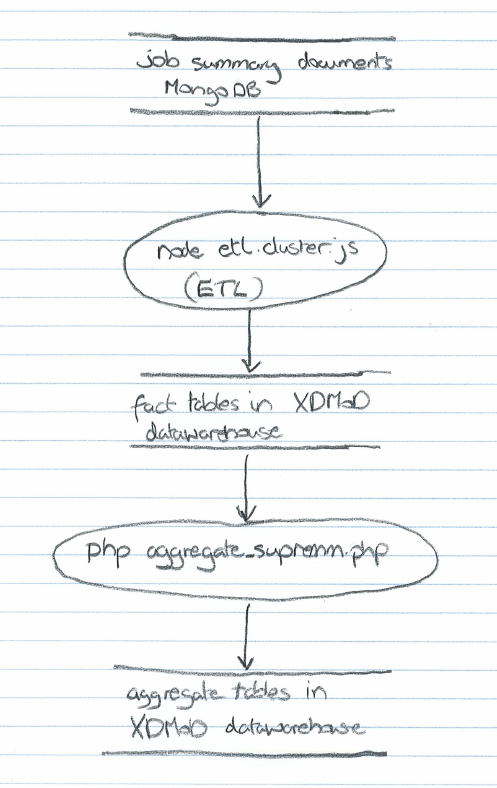 job summary documents
MongoDB
node etl.cluster.js
(ETL)
fact tables in XDMoD
datawarehouse
php aggregate_supremm.php
aggregate tables in
XDMoD datawarehouse